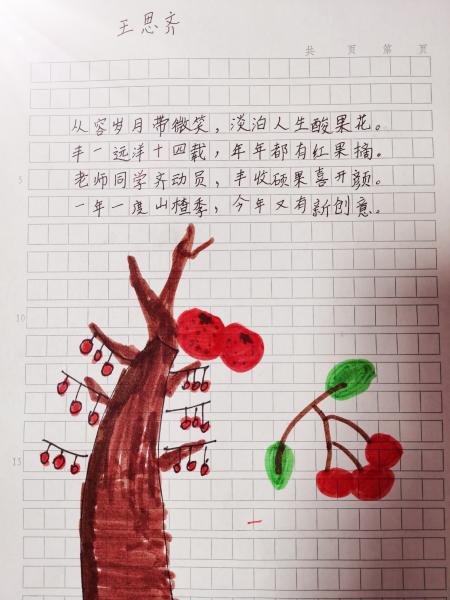 王思齐
共 页 第 页
从容岁月带微笑，淡泊人生酸果花。
丰一远洋十四载，年年都有红果摘。
5
老师同学齐动员，丰收硕果喜开颜。
一年一度山楂季，今年又有新创意。
10
15